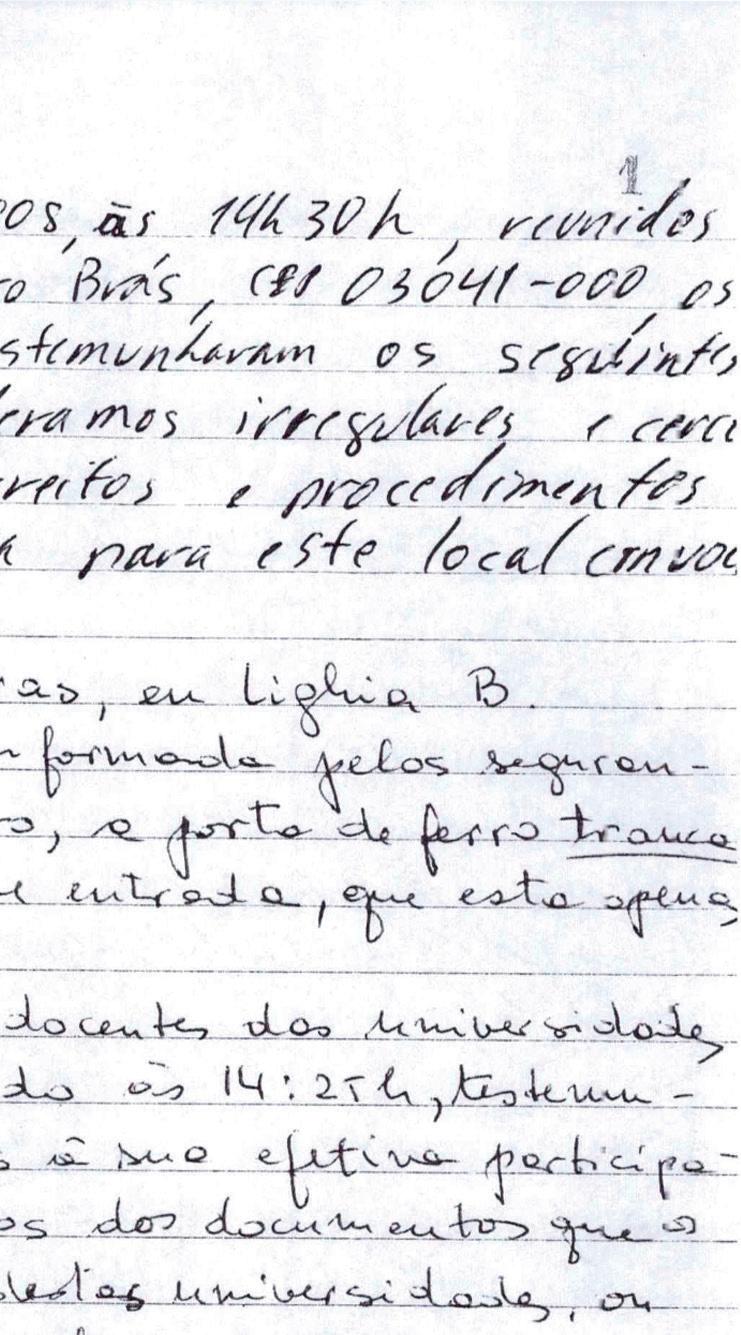 1
os, às 14h30h, reunidos
ro Brás, CEP 03041-000, os
stemunharam os seguintes
eramos irregulares e cerce
reitos e procedimentos
para este local convoc
as, eu Lighia B.
nformada pelos seguran-
o, a porta de ferro tranca
e entrada, que esta apenas
docentes das universidades
do às 14:25h, testemu-
s à sua efetiva participa-
os dos documentos que os
destas universidades, ou